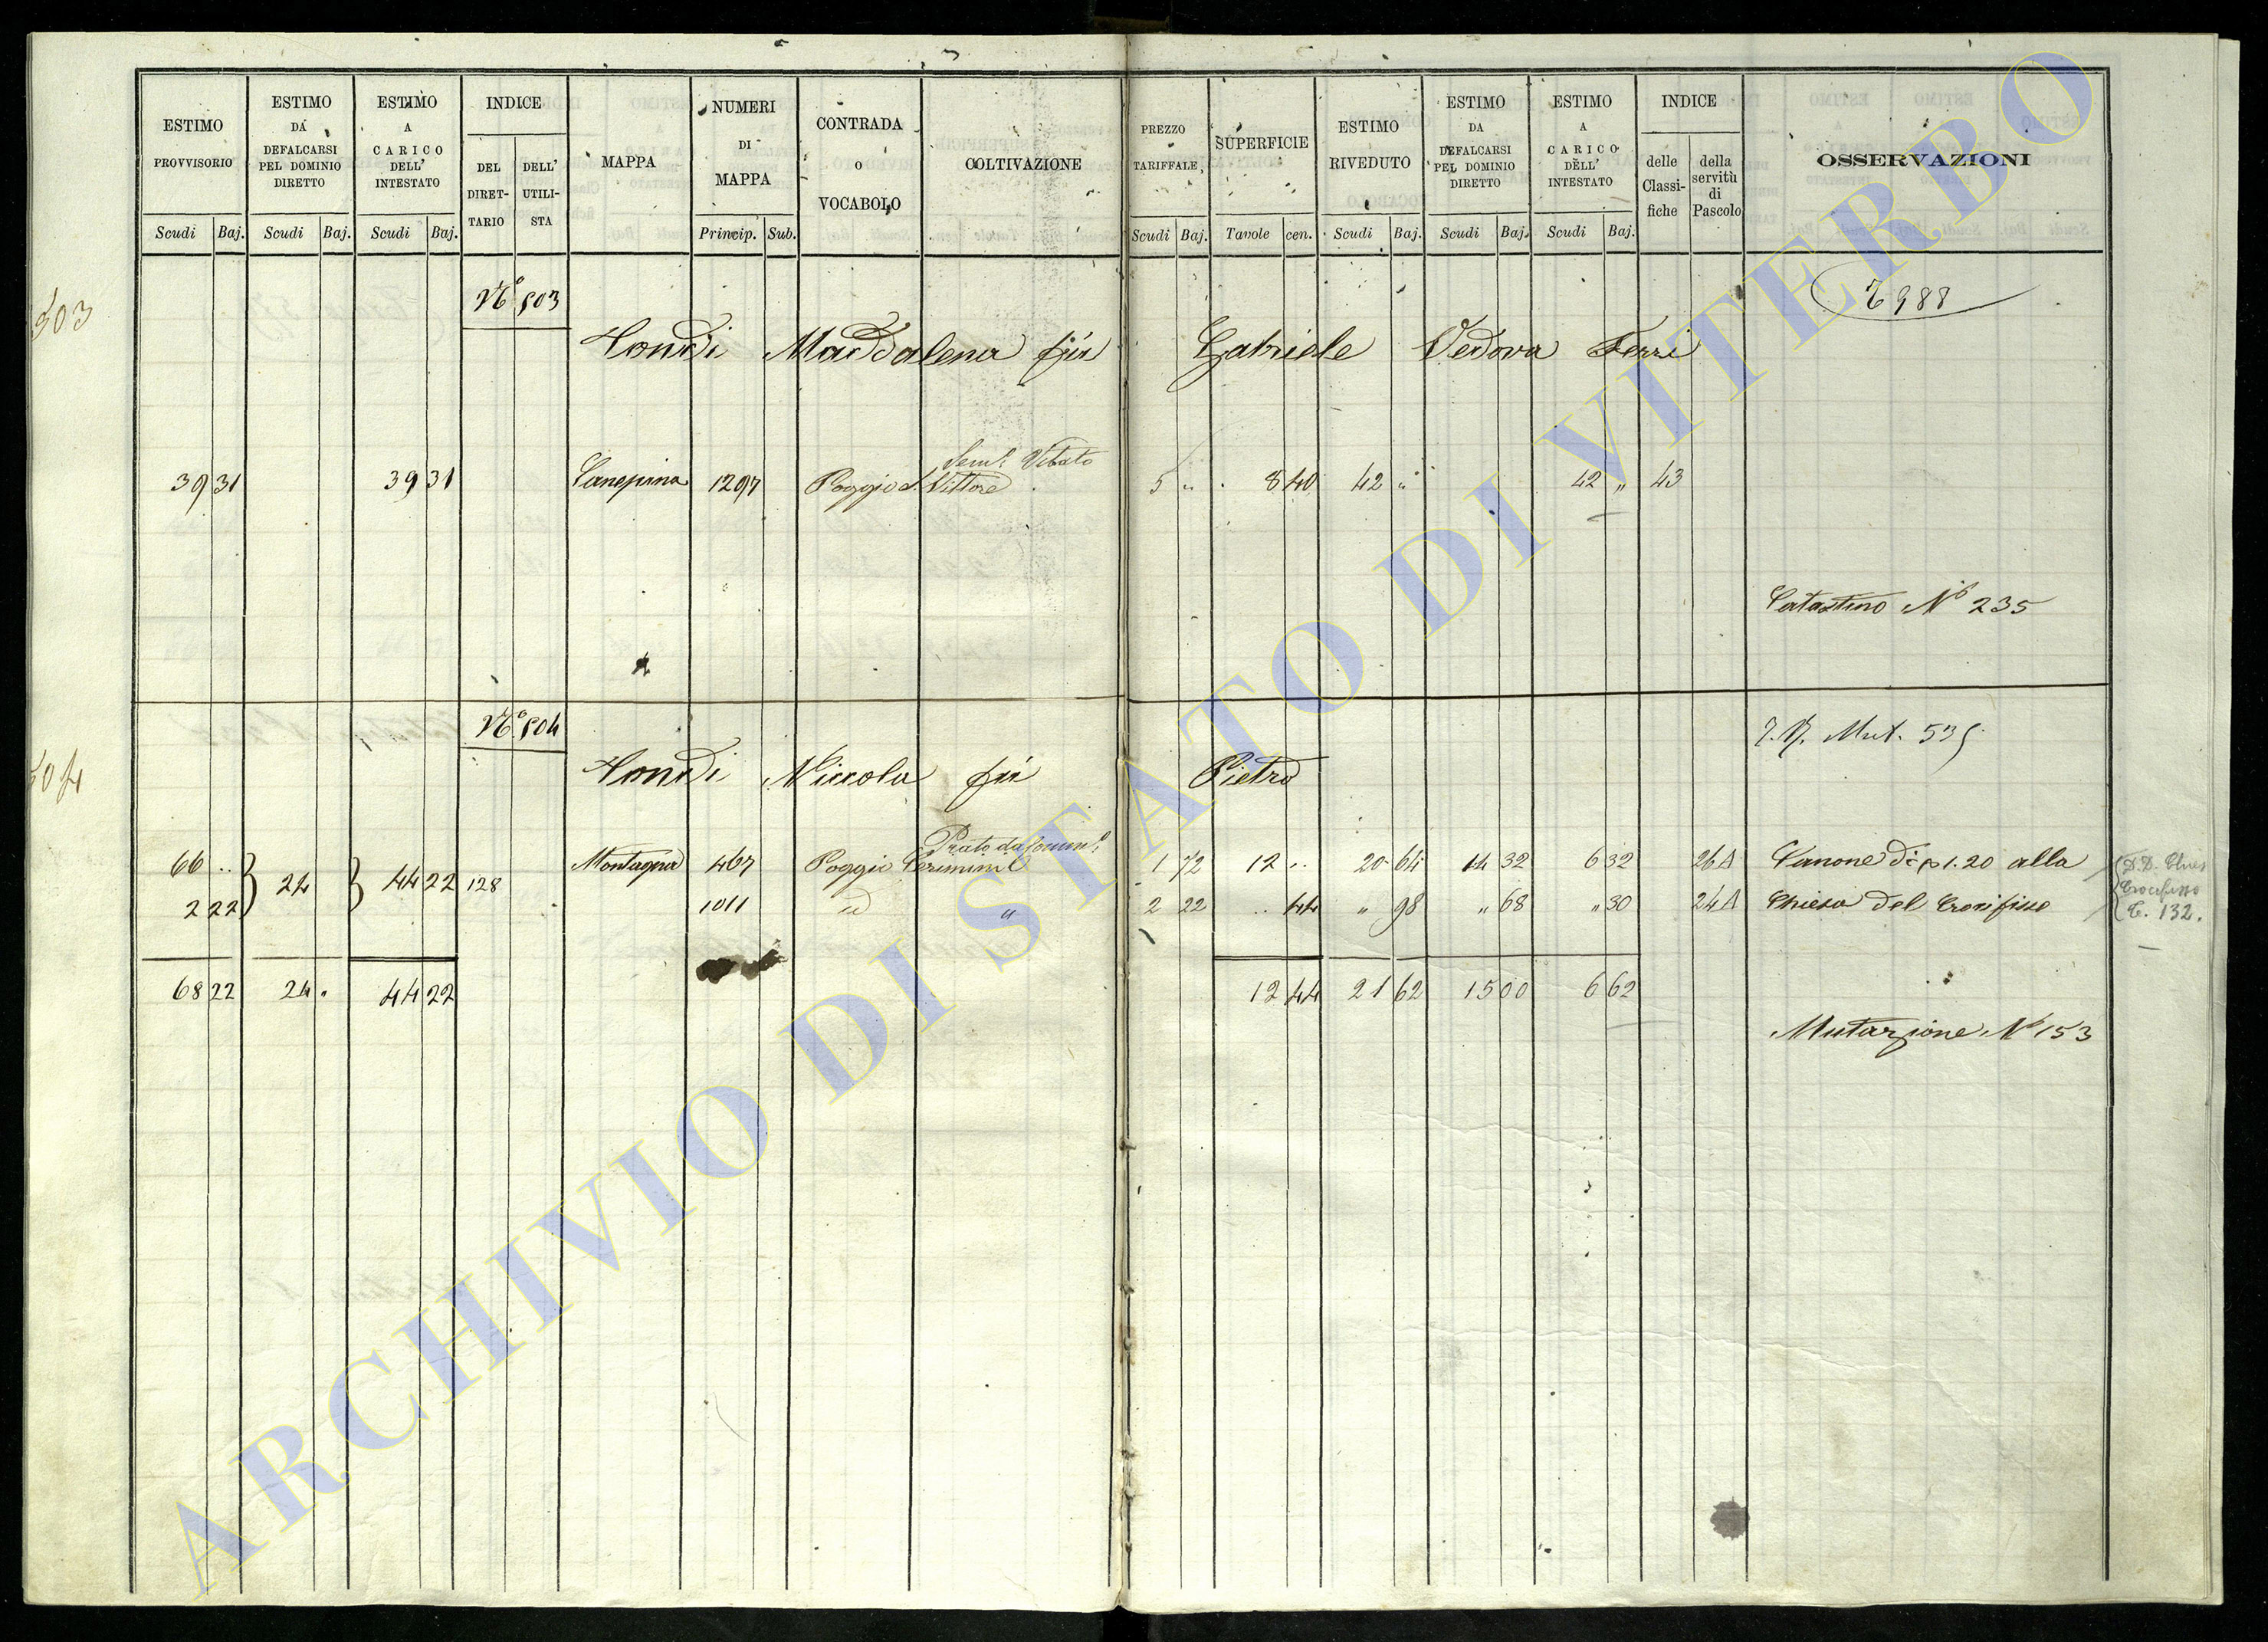 ESTIMO PROVVISORIO
ESTIMO DA DEFALCARSI PEL DOMINIO DIRETTO
ESTIMO A CARICO DELL' INTESTATO
INDICE
DEL DIRET- TARIO
DELL' UTILI- STA
MAPPA
NUMERI DI MAPPA
CONTRADA o VOCABOLO
COLTIVAZIONE
PREZZO TARIFFALE
SUPERFICIE
ESTIMO RIVEDUTO
ESTIMO DA DEFALCARSI PEL DOMINIO DIRETTO
ESTIMO A CARICO DELL' INTESTATO
INDICE
delle Classi- fiche
della servitù di Pascolo
OSSERVAZIONI
Scudi Baj. Scudi Baj. Scudi Baj. Princip. Sub. Scudi Baj. Tavole cen. Scudi Baj. Scudi Baj. Scudi Baj.
503
N° 503
988
Maddalena fù Gabriele Vedova Ferri
Vitato
39 31 39 31 Canepina 1297 Poggio S. Vittore 5 " 8 40 42 " 42 " 43
Catastino N° 235
504
N° 504
Mut. 535
Niccola fù Pietro
Prato da
66 .. Montagna 467 Poggio 1 72 12 .. 20 64 14 32 6 32 26 Canone di 1.20 alla
24 44 22 128
2 22 1011 id " 2 22 .. 44 " 98 " 68 " 30 24 Chiesa del Crocifisso
D.D. Chies
Crocifisso
C. 132.
68 22 24 " 44 22 12 44 21 62 15 00 6 62
Mutazione N° 153
ARCHIVIO DI STATO DI VITERBO